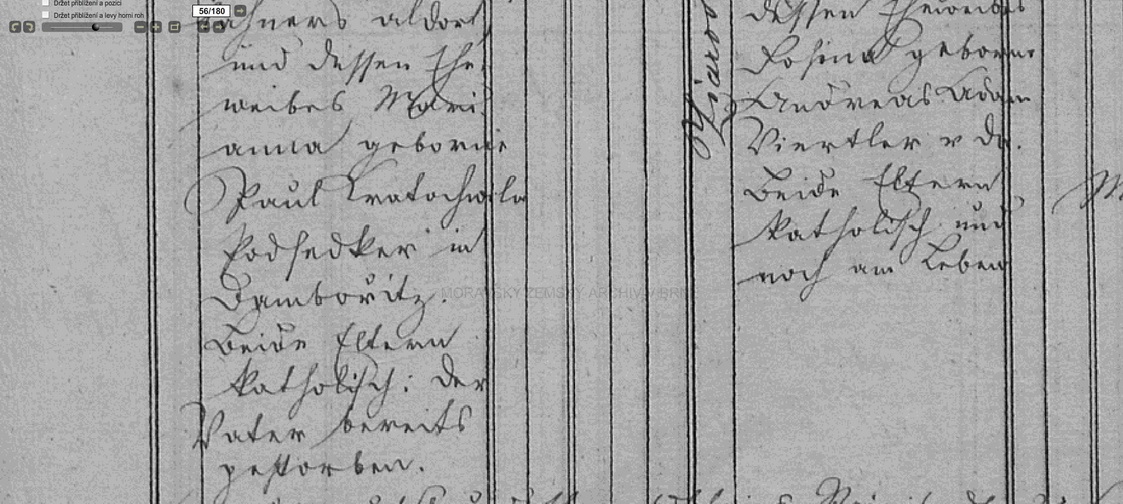 Držet přiblížení a pozici
Držet přiblížení a levý horní roh
56/180
aldort
und dessen Ehe-
weibes Mari-
anna geborne
Paul Kratochwila
Podsedker in
Damboritz.
Beide Eltern
katholisch: der
Vater bereits
gestorben.
dessen Eheweibes
Rosina geborne
Andreas Adam
Viertler v do.
Beide Eltern
katholisch und
noch am Leben
MORAVSKÝ ZEMSKÝ ARCHIV V BRNĚ